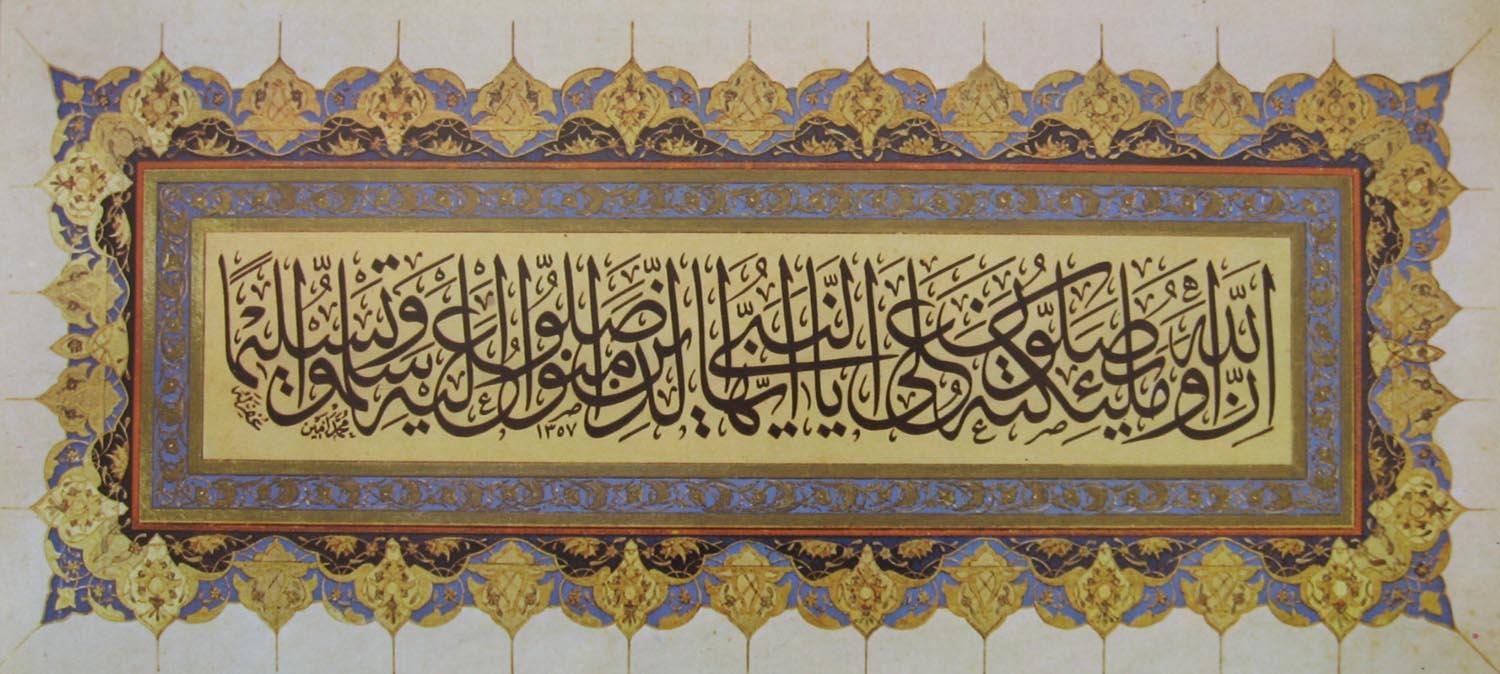 إِنَّ اللَّهَ وَمَلَٰئِكَتَهُ يُصَلُّونَ عَلَى النَّبِيِّ يَا أَيُّهَا الَّذِينَ آمَنُوا صَلُّوا عَلَيْهِ وَسَلِّمُوا تَسْلِيمًا
محمد امين
١٣٥٧